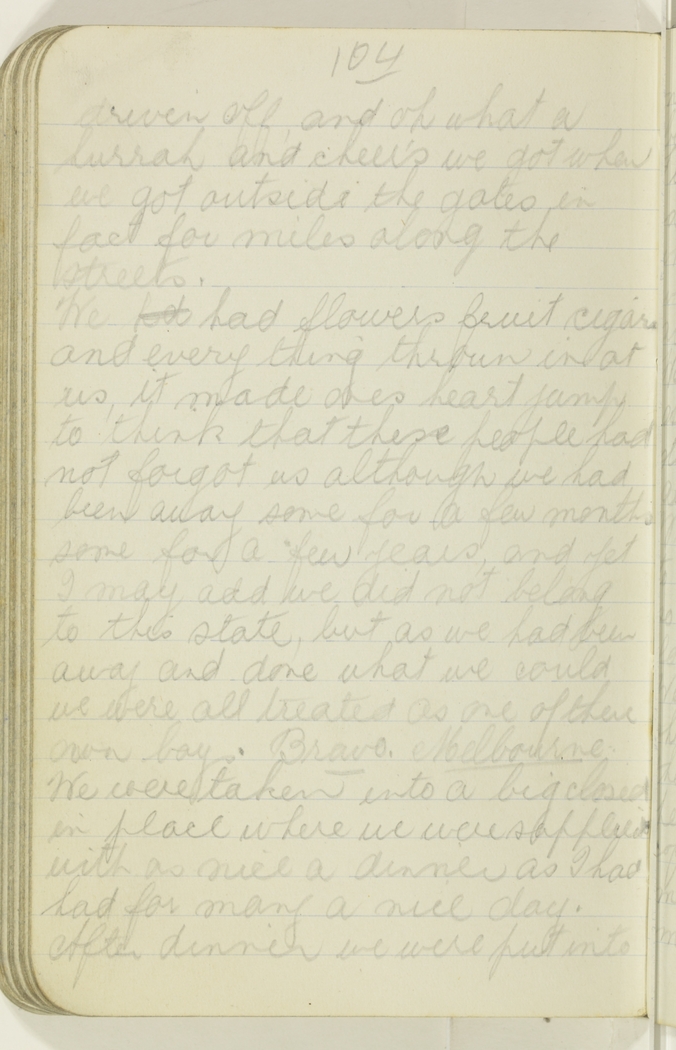 104
driven off, and oh what a
hurrah and cheers we got when
we got outside the gates in
fact for miles along the
streets.
We had flowers fruit cigars
and every thing thrown in at
us, it made ones heart jump
to think that these people had
not forgot us although we had
been away some for a few months
some for a few years, and yet
I may add we did not belong
to this state, but as we had been
away and done what we could
we were all treated as one of their
own boys. Bravo. Melbourne.
We were taken into a big closed
in place where we were supplied
with as nice a dinner as I had
had for many a nice day.
After dinner we were put into